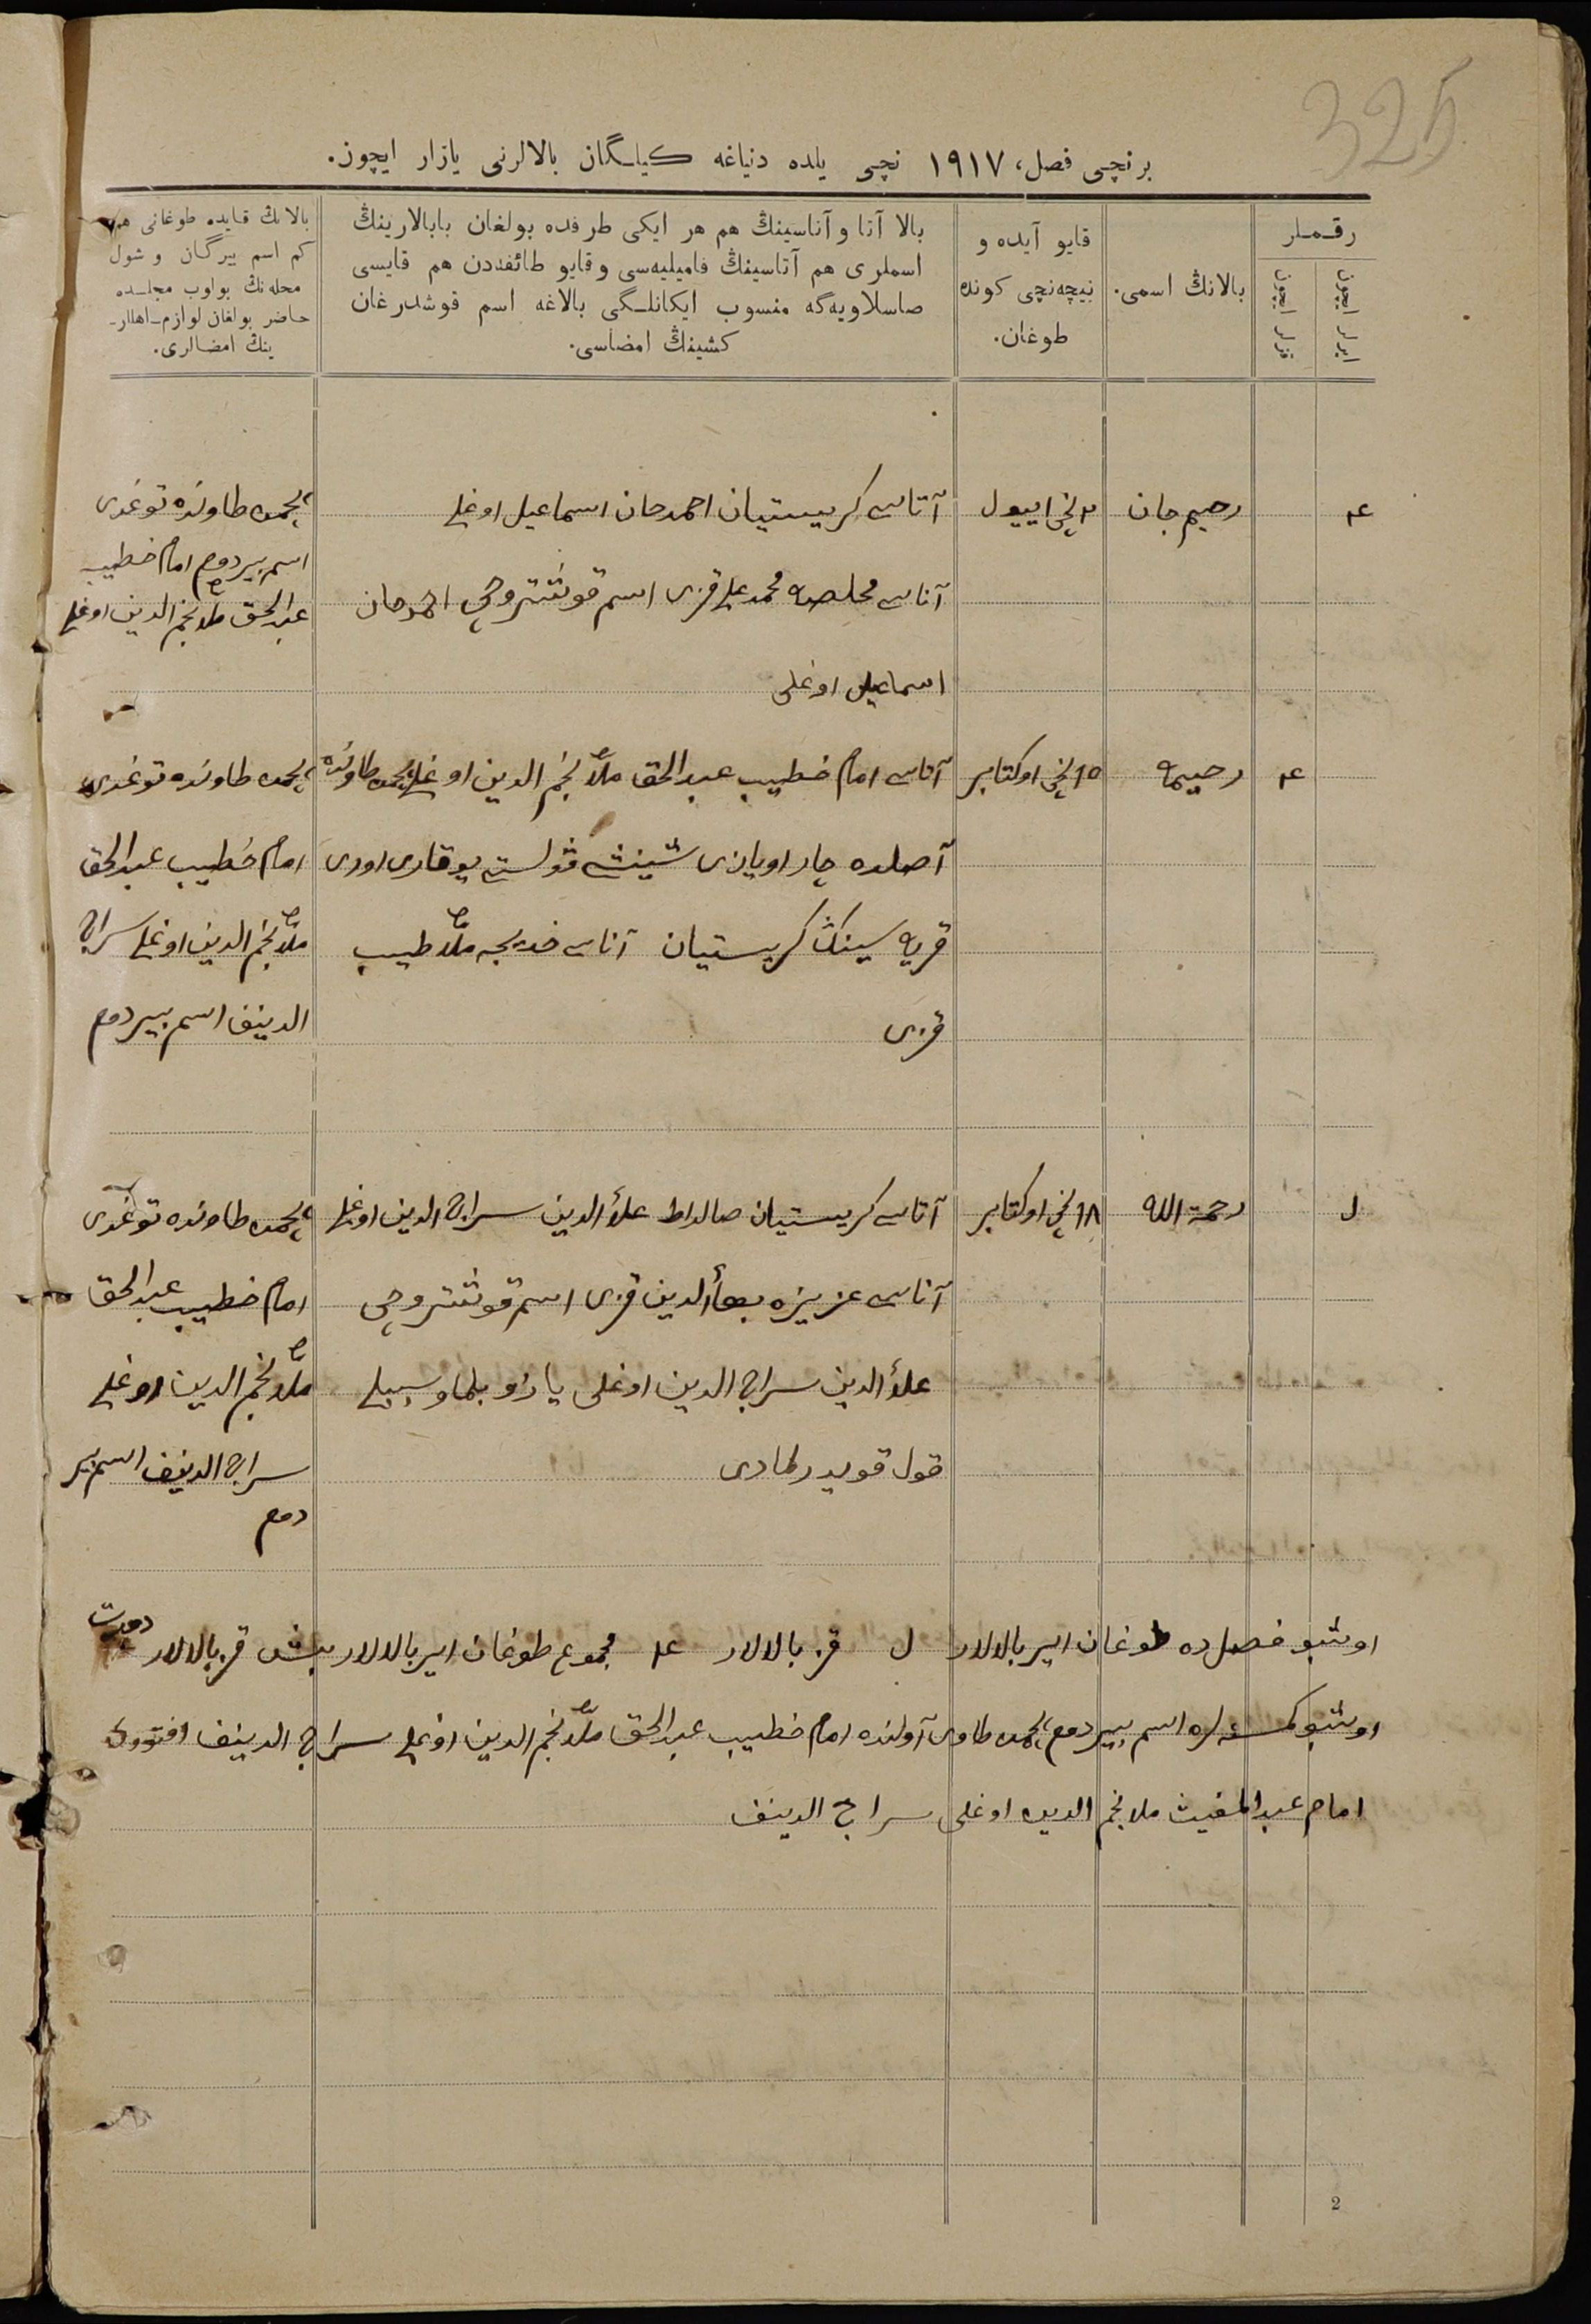 325
برنچی فصل، ١٩١٧ نچی یلده دنیاغه کیلگان بالالرنی یازار ایچون.
رقملر
ایرلر ایچون
قزلر ایچون
بالانڭ اسمی.
قایو آیده و
نیچه‌نچی کونده
طوغان.
بالا آتا و آناسینڭ هم هر ایکی طرفده بولغان بابالارینڭ
اسملری هم آتاسینڭ فامیلیه‌سی و قایو طائفه‌دن هم قایسی
صاسلاویه‌گه منسوب ایکانلگی بالاغه اسم قوشدرغان
کشینڭ امضاسی.
بالانڭ قایده طوغانی هم
کم اسم بیرگان و شول
محله‌نڭ بو اوب مجلسده
حاضر بولغان لوازم اهللار
ینڭ امضالری.
٤
رحیم جان
٢ نچی اییول
آتاسی کریستیان احمدجان اسماعیل اوغلی
آناسی مخلصه محمد علی قزی اسم قوشتروچی احمدجان
اسماعیل اوغلی
طاونده توغدی
اسم بیردوم امام خطیب
عبدالحق ملا نجم الدین اوغلی
٤
رحیمه
١٥ نچی اوکتابر
آتاسی امام خطیب عبدالحق ملّا نجم الدین اوغلی طاونده
آصلده چار اویازی شینشه ڤولستی یوقاری اوری
قریه سینڭ کریستیان آناسی خدیجه ملّا طیب
قزی
طاونده توغدی
امام خطیب عبدالحق
ملّا نجم الدین اوغلی سراج
الدینف اسم بیردم
رحمة الله
١٨ نچی اوکتابر
آتاسی کریستیان صالداط علأ الدین سراج الدین اوغلی
آناسی عزیزه بهأ الدین قزی اسم قوشتروچی
علأ الدین سراج الدین اوغلی یازو بلماو سببلی
قول قویدرلمادی
طاونده توغدی
امام خطیب عبدالحق
ملّا نجم الدین اوغلی
سراج الدینف اسم بیر
دم
اوشبو فصل ده طوغان ایر بالالار قز بالالار ٤ مجموع طوغان ایر بالالار بیش قز بالالار دورت
اوشبو کشی لره اسم بیردم طاوی آولنده امام خطیب عبدالحق ملّا نجم الدین اوغلی سراج الدینف
امام عبدالمغیث ملا نجم الدین اوغلی سراج الدینف
2